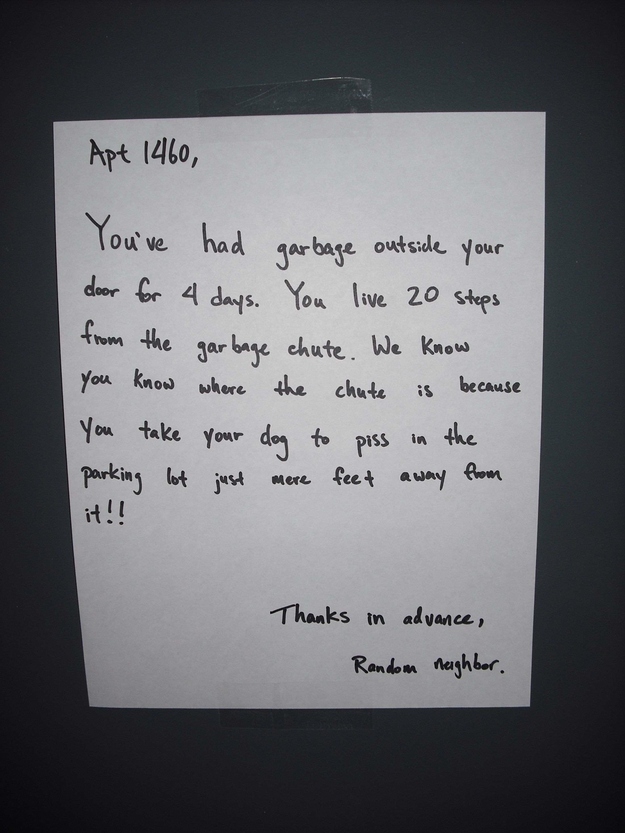 Apt 1460,
You've had garbage outside your
door for 4 days. You live 20 steps
from the garbage chute. We know
you know where the chute is because
you take your dog to piss in the
parking lot just mere feet away from
it!!
Thanks in advance,
Random neighbor.